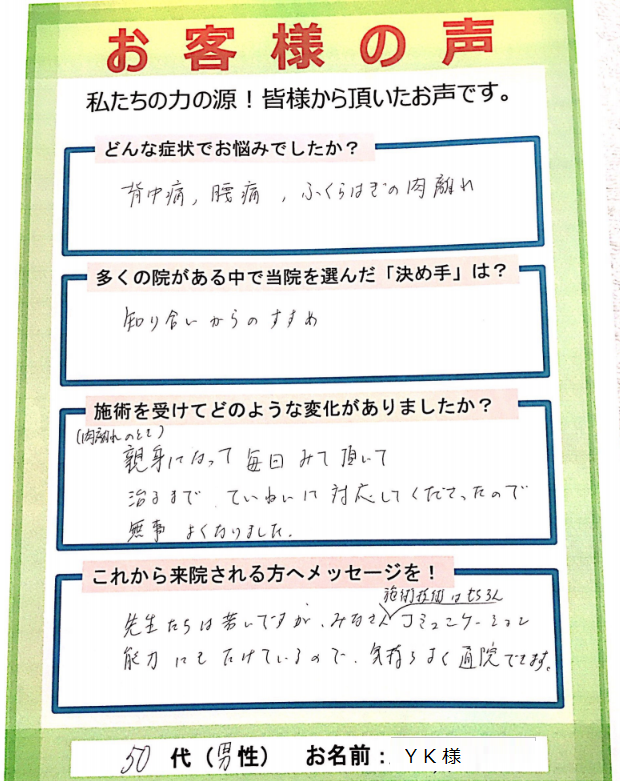 お客様の声
私たちの力の源！皆様から頂いたお声です。
どんな症状でお悩みでしたか？
背中痛，腰痛，ふくらはぎの肉離れ
多くの院がある中で当院を選んだ「決め手」は？
知り合いからのすすめ
施術を受けてどのような変化がありましたか？
(肉離れのとき)
親身になって毎日みて頂いて
治るまで、ていねいに対応してくださったので
無事よくなりました。
これから来院される方へメッセージを！
施術技術はもちろん
先生たちは若いですが、みなさんコミュニケーション
能力にもたけているので、気持ちよく通院できます。
50代（男性） お名前：ＹＫ様